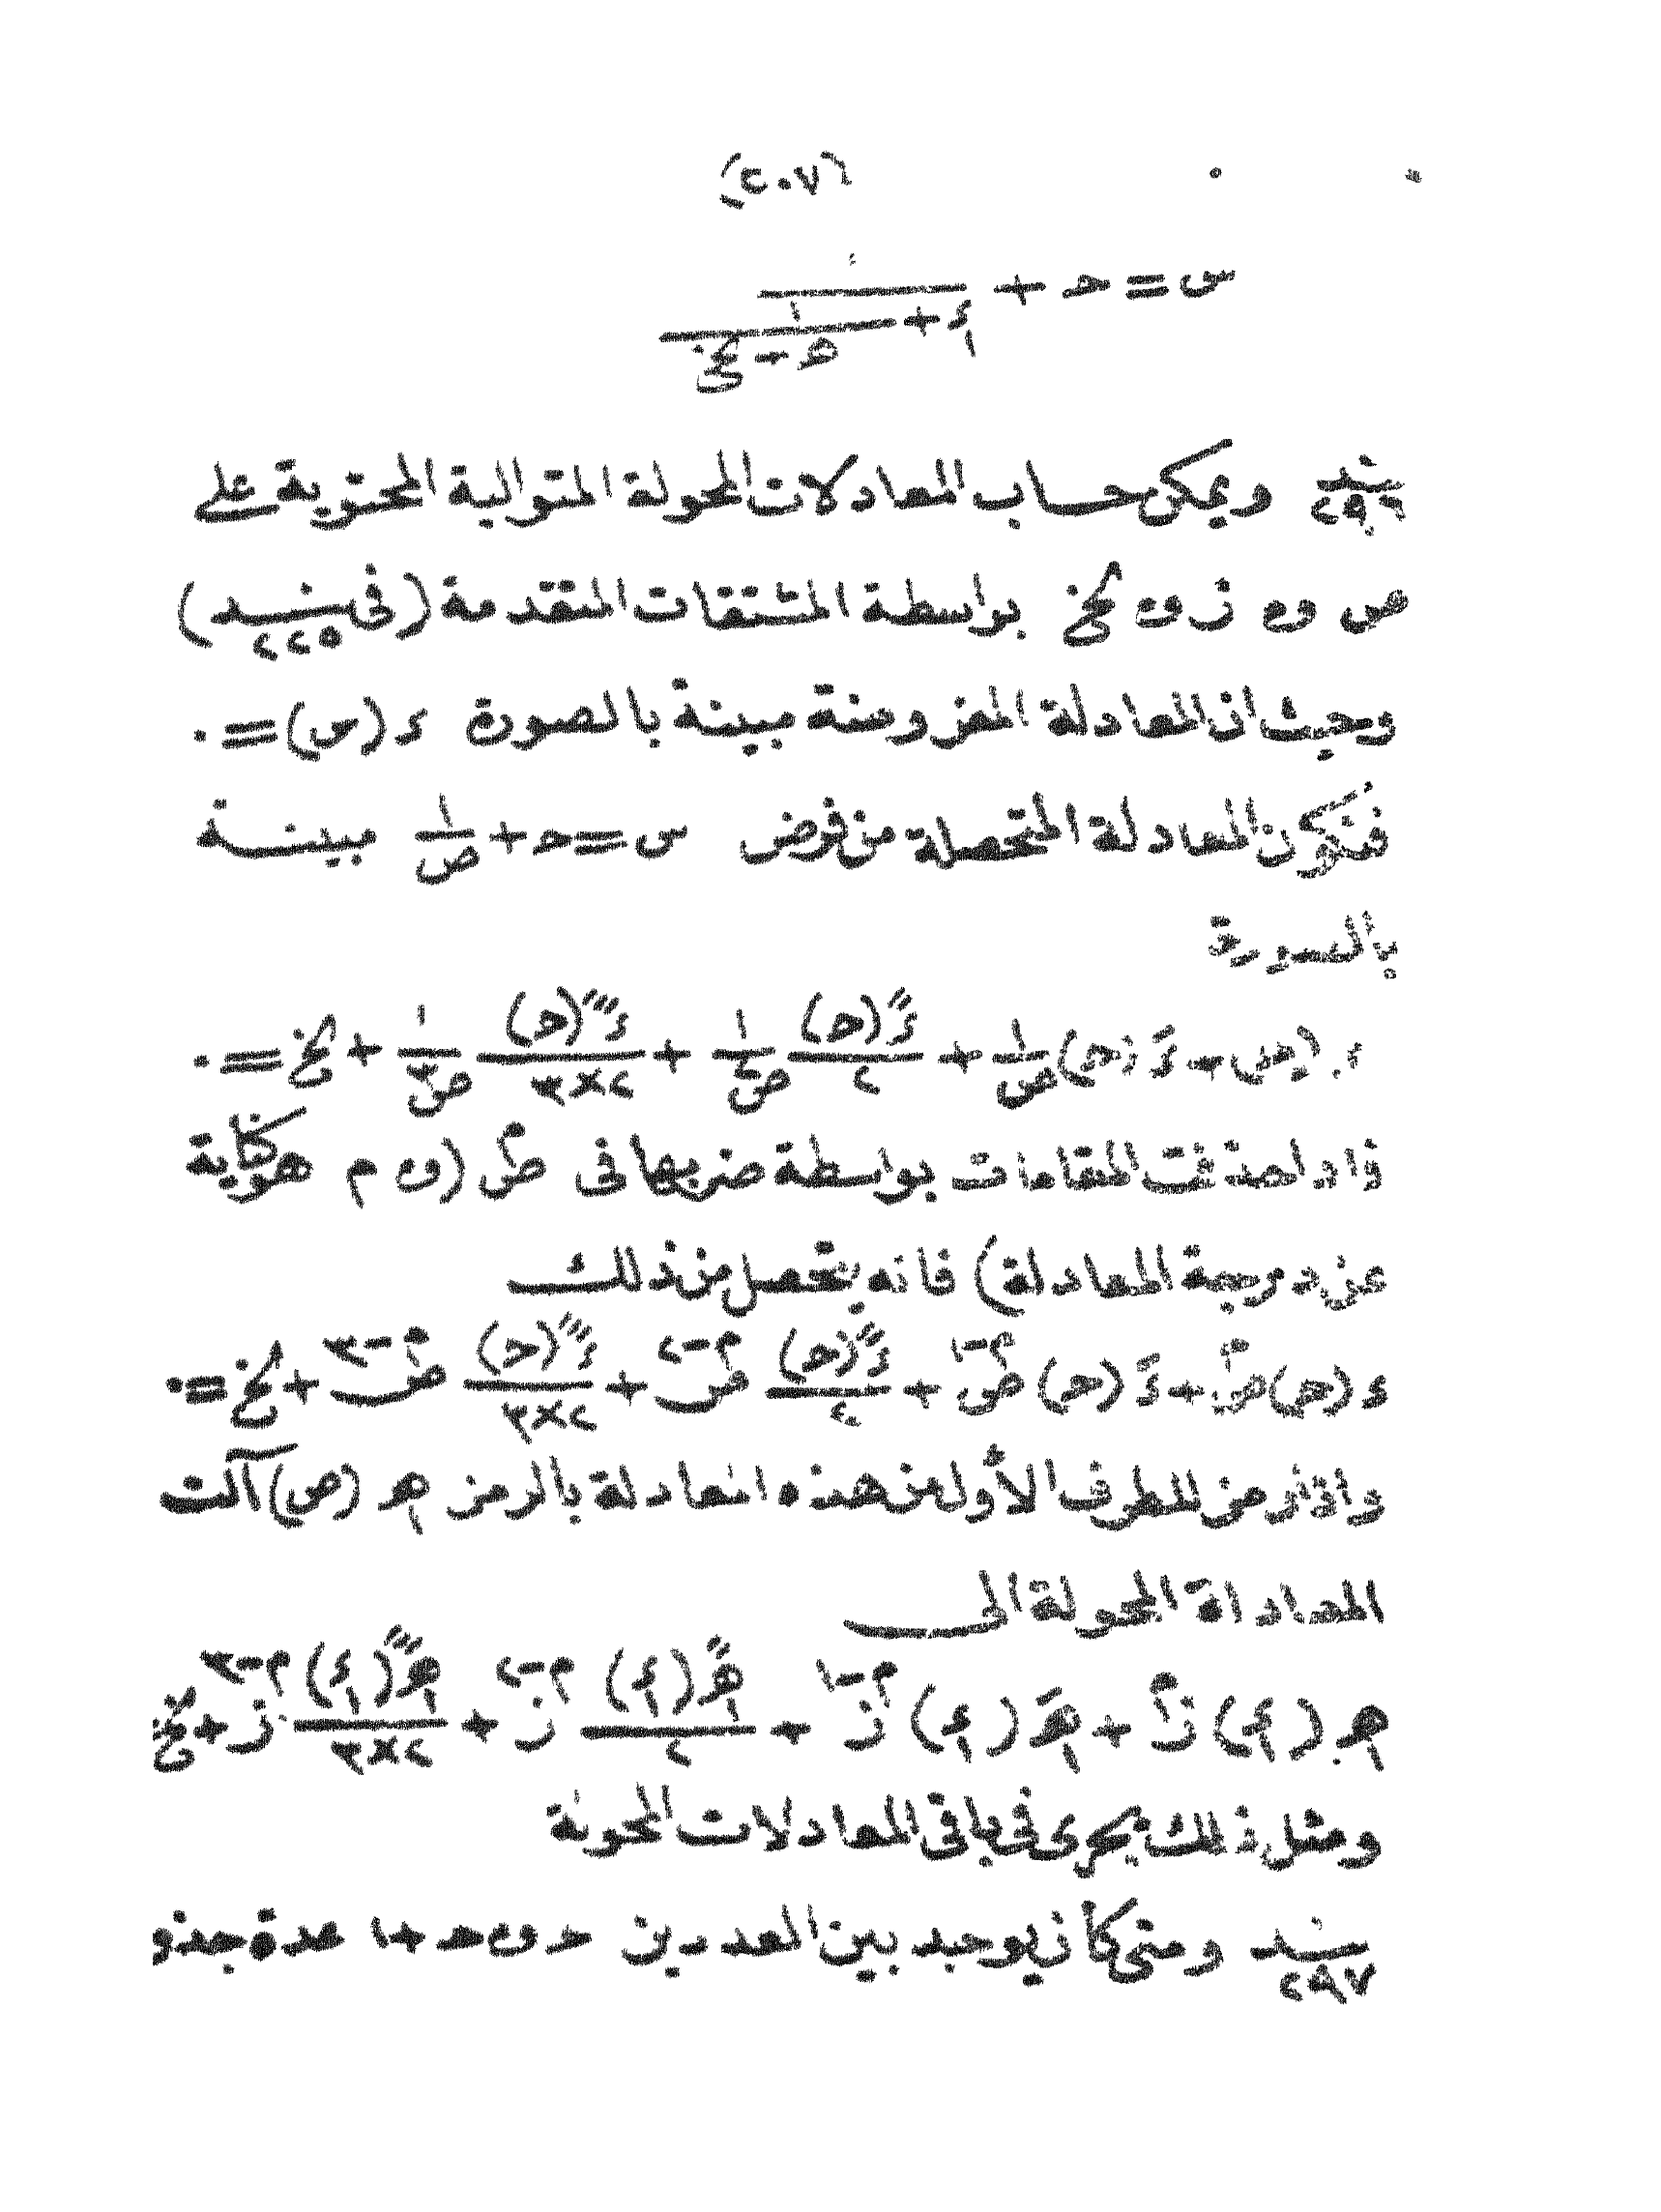 (٢٠٧)
س = حـ + ١/(ء١ + ١/(هـ + الخ
بند ٢٩٦ ويمكن حساب المعادلات المحولة المتوالية المحتوية على
ص و ز و الخ بواسطة المشتقات المتقدمة (فى بند ٢٢٥)
وحيث ان المعادلة المفروضة مبينة بالصورة ء (س) = ٠
فتكون المعادلة المتحصلة من فرض س = حـ + ١/ص مبينة
بالصورة
ء (حـ) + ءَ (حـ) ١/ص + ءً (حـ)/٢ ١/ص٢ + ءً َ (حـ)/٢×٣ ١/ص٣ + الخ = ٠
فاذا حذفت المقامات بواسطة ضربها فى صم (و م هو كناية
عن درجة المعادلة) فانه يتحصل من ذلك
ء (حـ) صم + ءَ (حـ) صم-١ + ءً (حـ)/٢ صم-٢ + ءً َ (حـ)/٢×٣ صم-٣ + الخ = ٠
واذا رمز للطرف الأول من هذه المعادلة بالرمز هـ١ (ص) آلت
المعادلة المحولة الى
هـ١ (ء١) زم + هـَ١ (ء١) زم-١ + هـً١ (ء١)/٢ زم-٢ + هـً َ١ (ء١)/٢×٣ زم-٣ + الخ
ومثل ذلك يجرى فى باقى المعادلات المحولة
بند ٢٩٧ ومتى كان يوجد بين العددين حـ و حـ + ١ عدة جذو